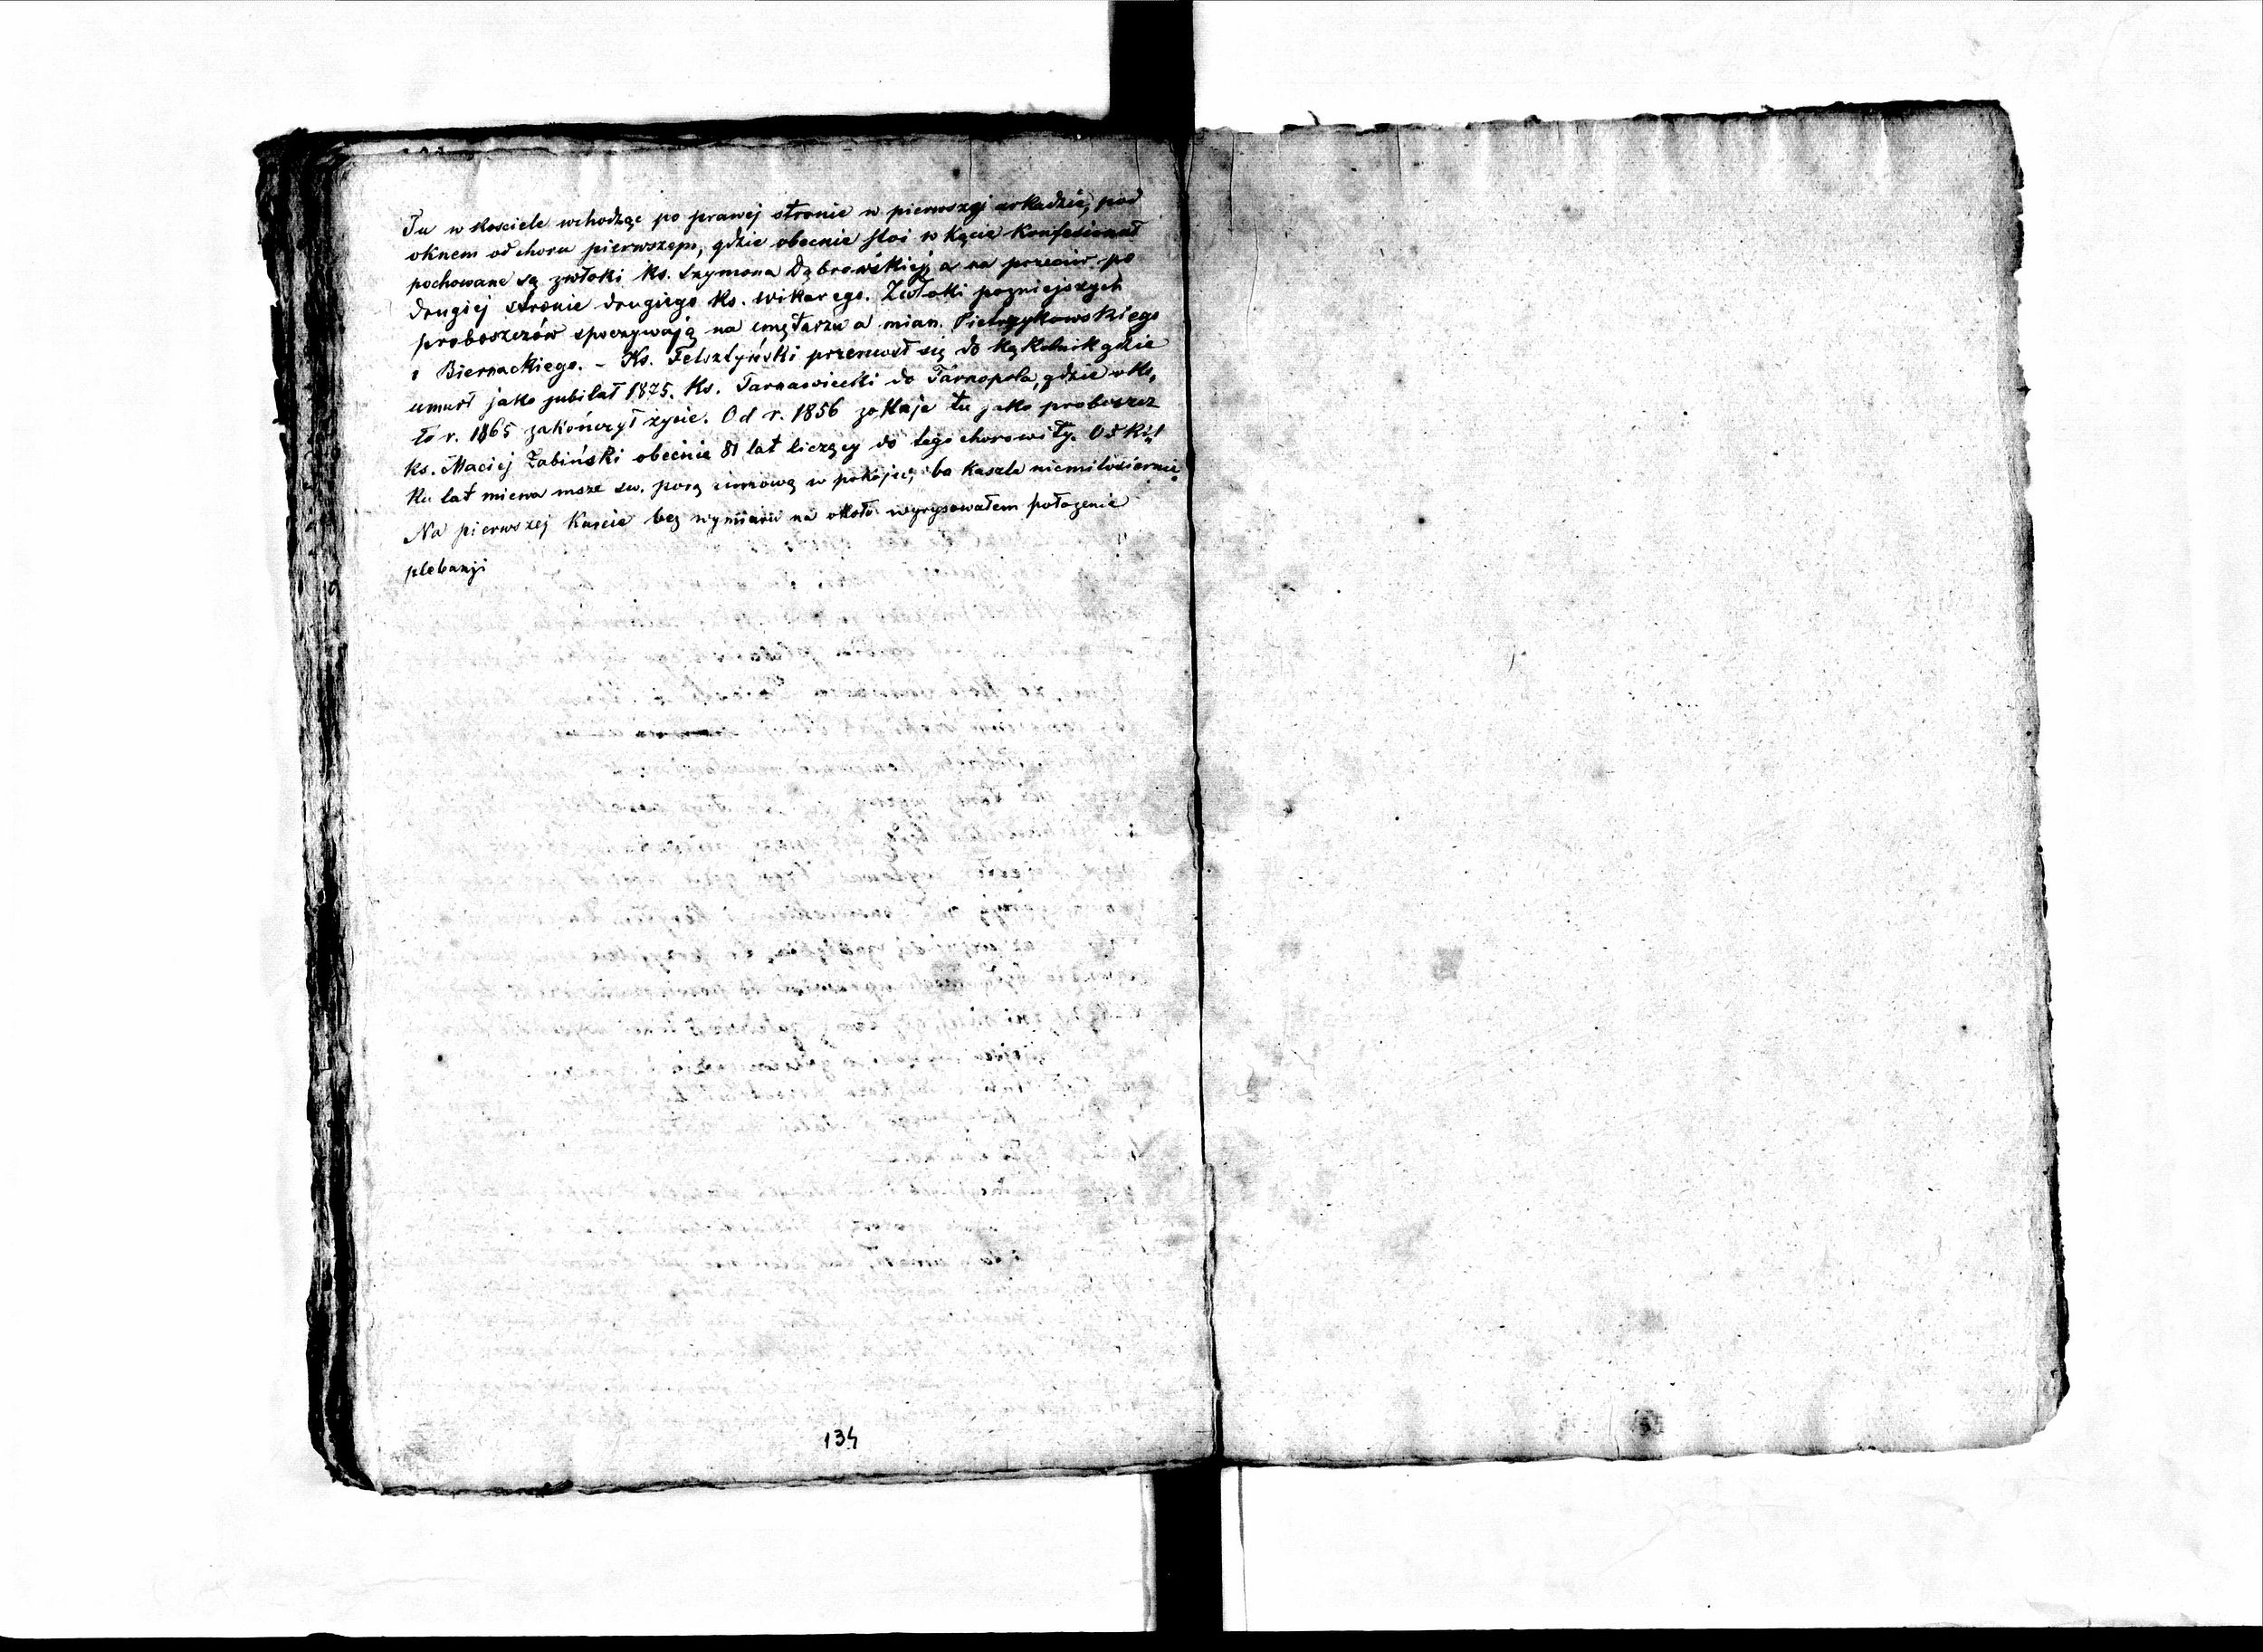 Tu w kosciele wchodząc po prawej stronie w pierwszej arkadzie, pod
oknem od choru pierwszem, gdzie obecnie stoi w kącie konfesionał
pochowane są zwłoki ks. Szymona Dąbrowskiej, a na przeciw po
drugiej stronie drugiego ks. wikarego. Zwłoki pozniejszych
proboszczów spoczywają na cmętarzu a mian. Pietrzykowskiego
i Biernackiego. - Ks. Felsztyński przeniosł się do Kąkolnik gdzie
umarł jako jubilat 1875. Ks. Tarnawiecki do Tarnopola, gdzie oko,
ło r. 1865 zakończył życie. Od r. 1856 zostaje tu jako proboszcz
ks. Maciej Żabiński obecnie 81 lat liczący do tego chorowity. Od kil
ku lat miewa msze św. porą zimową w pokoju, bo kaszle niemilosiernie.
Na pierwszej karcie bez wymiaru na około wyrysowałem położenie
plebanji
134